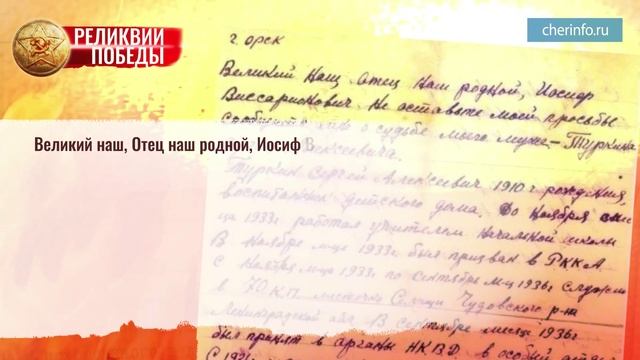 РЕЛИКВИИ
ПОБЕДЫ
cherinfo.ru
г. орск
Великий Наш, Отец Наш родной, Иосиф
Виссарионович. Не оставьте моей просьбы
сообщить о судьбе моего мужа – Туркина
Алексеевича.
Великий наш, Отец наш родной, Иосиф В
Туркин Сергей Алексеевич 1910 г. рождения,
воспитанник детского дома. До ноября
ца 1933г. работал учителем Начальной школы
В Ноябре м-це 1933г. был призван в РККА.
С Ноября м-ца 1933г. по сентябрь м-ц 1936г служил
в местечко Чудовского р-на
Ленинградской обл. В сентябре месяце 1936г.
был принят в органы НКВД в особый